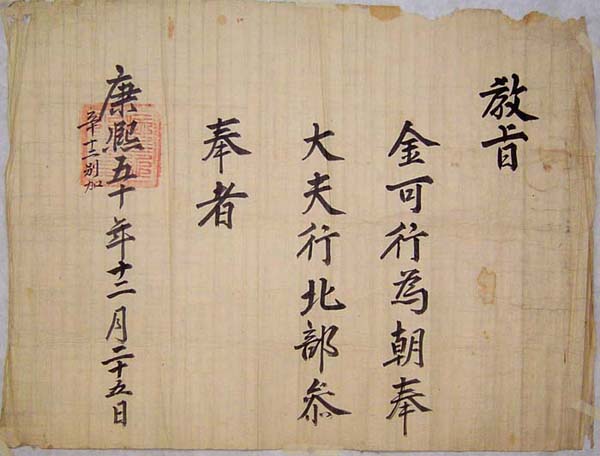 教旨
金可行為朝奉
大夫行北部叅
奉者
康熙五十年十二月二十五日
別加